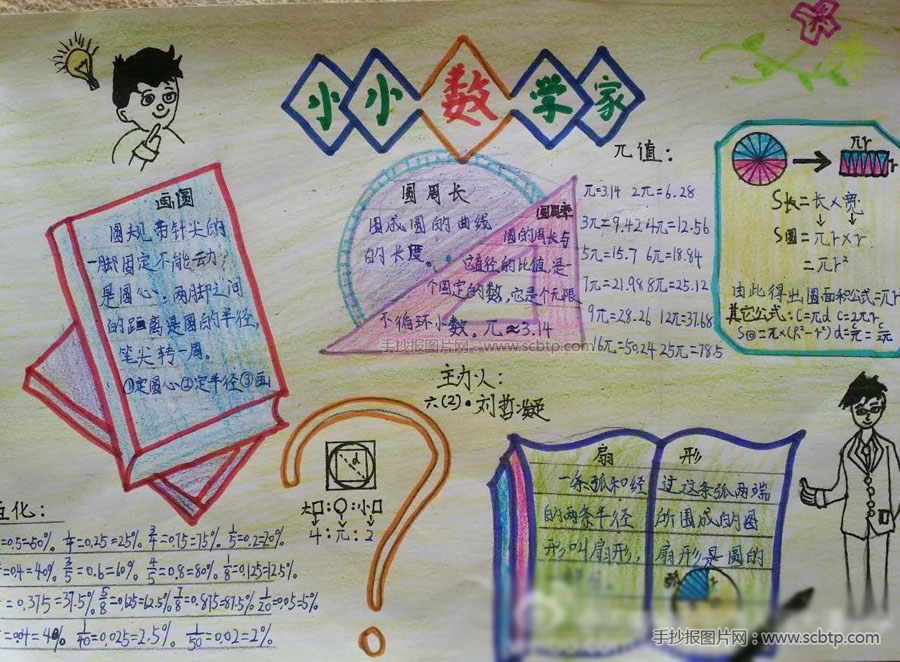 小小数学家
画圆
圆规带针尖的
一脚固定不能动,
是圆心;两脚之间
的距离是圆的半径,
笔尖转一周。
①定圆心②定半径③画
圆周长
围成圆的曲线
的长度。
圆周率
圆的周长与
它直径的比值,是一
个固定的数,它是个无限
不循环小数。π≈3.14
手抄报图片网:www.scbtp.com
π值:
π=3.14 2π=6.28
3π=9.42 4π=12.56
5π=15.7 6π=18.84
7π=21.98 8π=25.12
9π=28.26 12π=37.68
16π=50.24 25π=78.5
πr
r
S长=长×宽
S圆=πr×r
=πr²
由此得出,圆面积公式=πr
其它公式:C=πd C=2πr
主办人:
六(2)·刘哲凝
d
大口:○:小口
4:π:2
互化:
=0.5=50%, =0.25=25%, 3/4=0.75=75%, 1/5=0.2=20%
=0.4=40%, 3/5=0.6=60%, 4/5=0.8=80%, 1/8=0.125=12.5%
=0.375=37.5%, 5/8=0.625=62.5%, 7/8=0.875=87.5%, 1/20=0.05=5%
=0.04=4%, 1/40=0.025=2.5%, 1/50=0.02=2%
扇形
一条弧和经过这条弧两端
的两条半径所围成的图
形叫扇形,扇形是圆的
手抄报图片网:www.scbtp.com